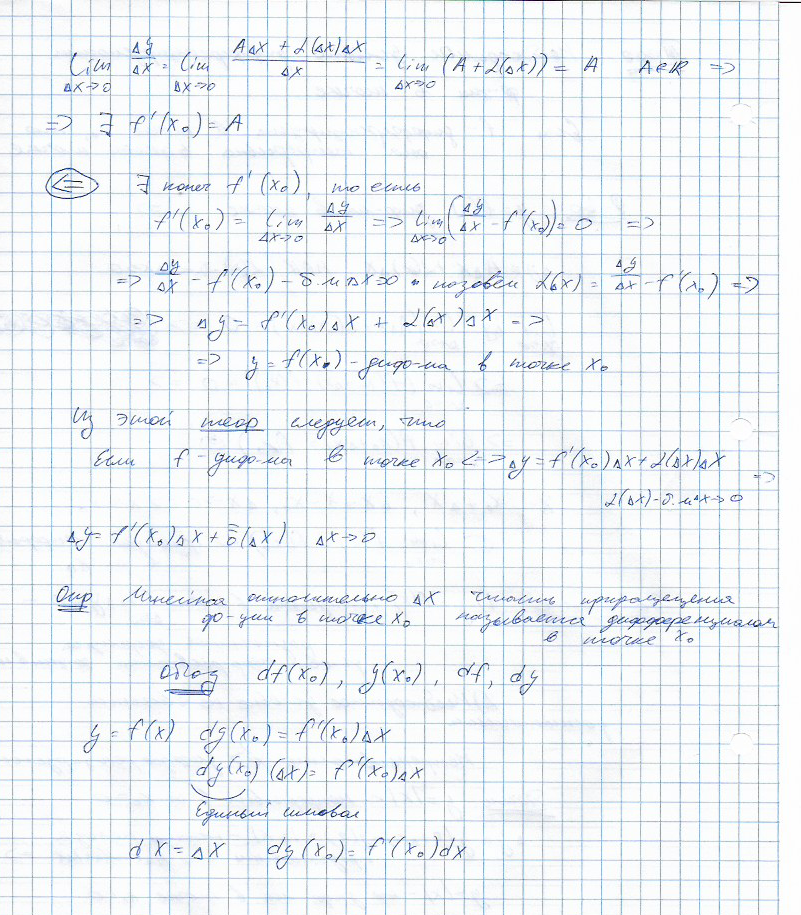 lim Δx→0 Δy/Δx = lim Δx→0 (AΔx + α(Δx)Δx)/Δx = lim Δx→0 (A + α(Δx)) = A A∈R =>
=> ∃ f'(x₀) = A
<= ∃ конеч f'(x₀), то есть
f'(x₀) = lim Δx→0 Δy/Δx => lim Δx→0 (Δy/Δx - f'(x₀)) = 0 =>
=> Δy/Δx - f'(x₀) - б.м Δx→0 назовем α(Δx) = Δy/Δx - f'(x₀) =>
=> Δy = f'(x₀)Δx + α(Δx)Δx =>
=> y = f(x₀) - дифф-ма в точке x₀
Из этой теор следует, что
Если f - дифф-ма в точке x₀ <=> Δy = f'(x₀)Δx + α(Δx)Δx =>
α(Δx) - б.м Δx→0
Δy = f'(x₀)Δx + o̿(Δx) Δx→0
Опр Линейная относительно Δx часть приращения
ф-ции в точке x₀ называется дифференциалом
в точке x₀
Обозн df(x₀), y(x₀), df, dy
y = f(x) dy(x₀) = f'(x₀)Δx
dy(x₀) (Δx) = f'(x₀)Δx
Единый символ
dx = Δx dy(x₀) = f'(x₀)dx